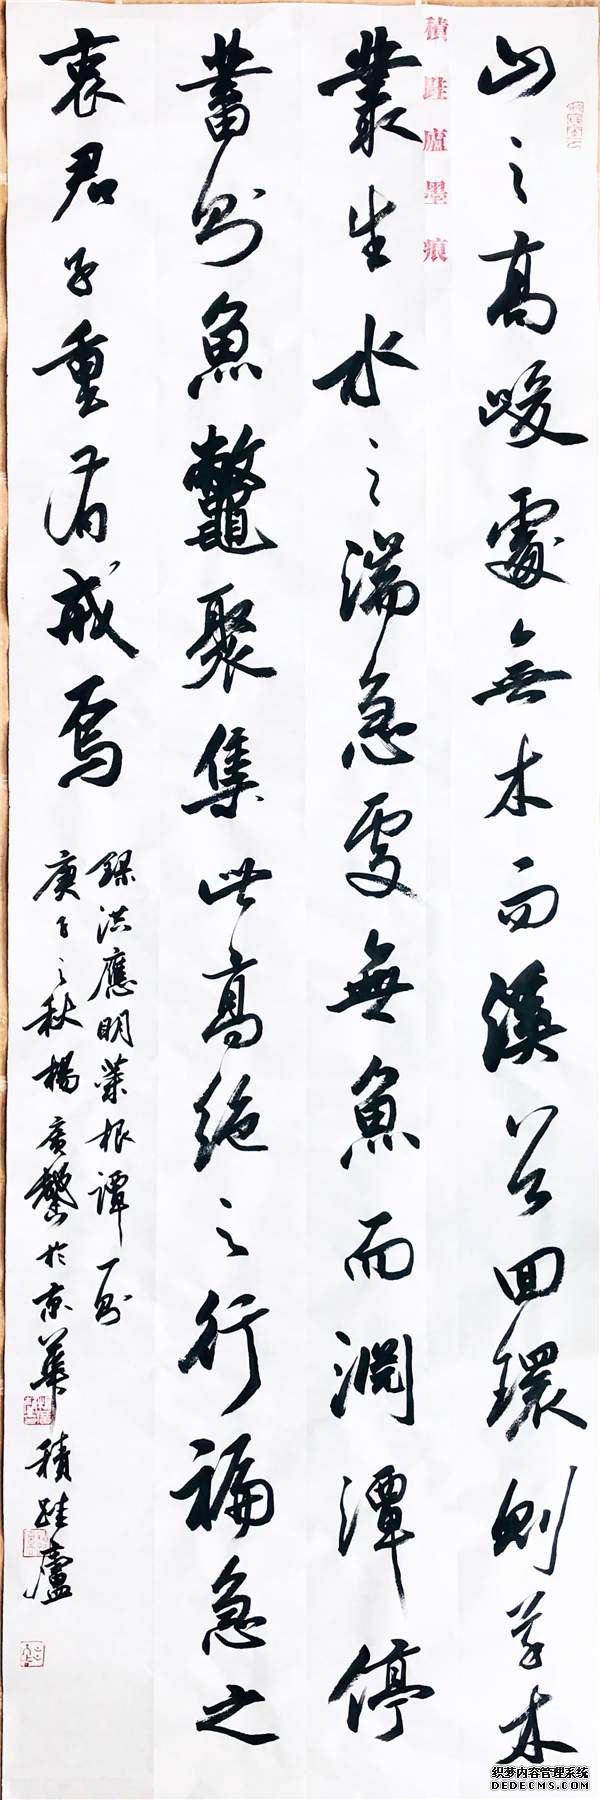 山之高峻處無木而溪谷回環則草木
叢生水之湍急處無魚而淵潭停
蓄則魚鼈聚集此高絕之行褊急之
衷君子重有戒焉
錄洪應明菜根譚一則
庚子之秋楊廣馨於京華 積跬廬
積跬廬墨痕
织梦内容管理系统
DEDECMS.COM